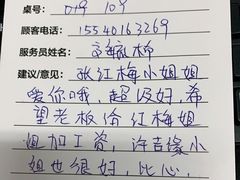 桌号：019 109
顾客电话：15540163269
服务员姓名：
建议/意见：张红梅小姐姐
爱你哦，超级好，希
望老板给红梅姐
姐加工资，许吉缘小
姐也很好，比心，